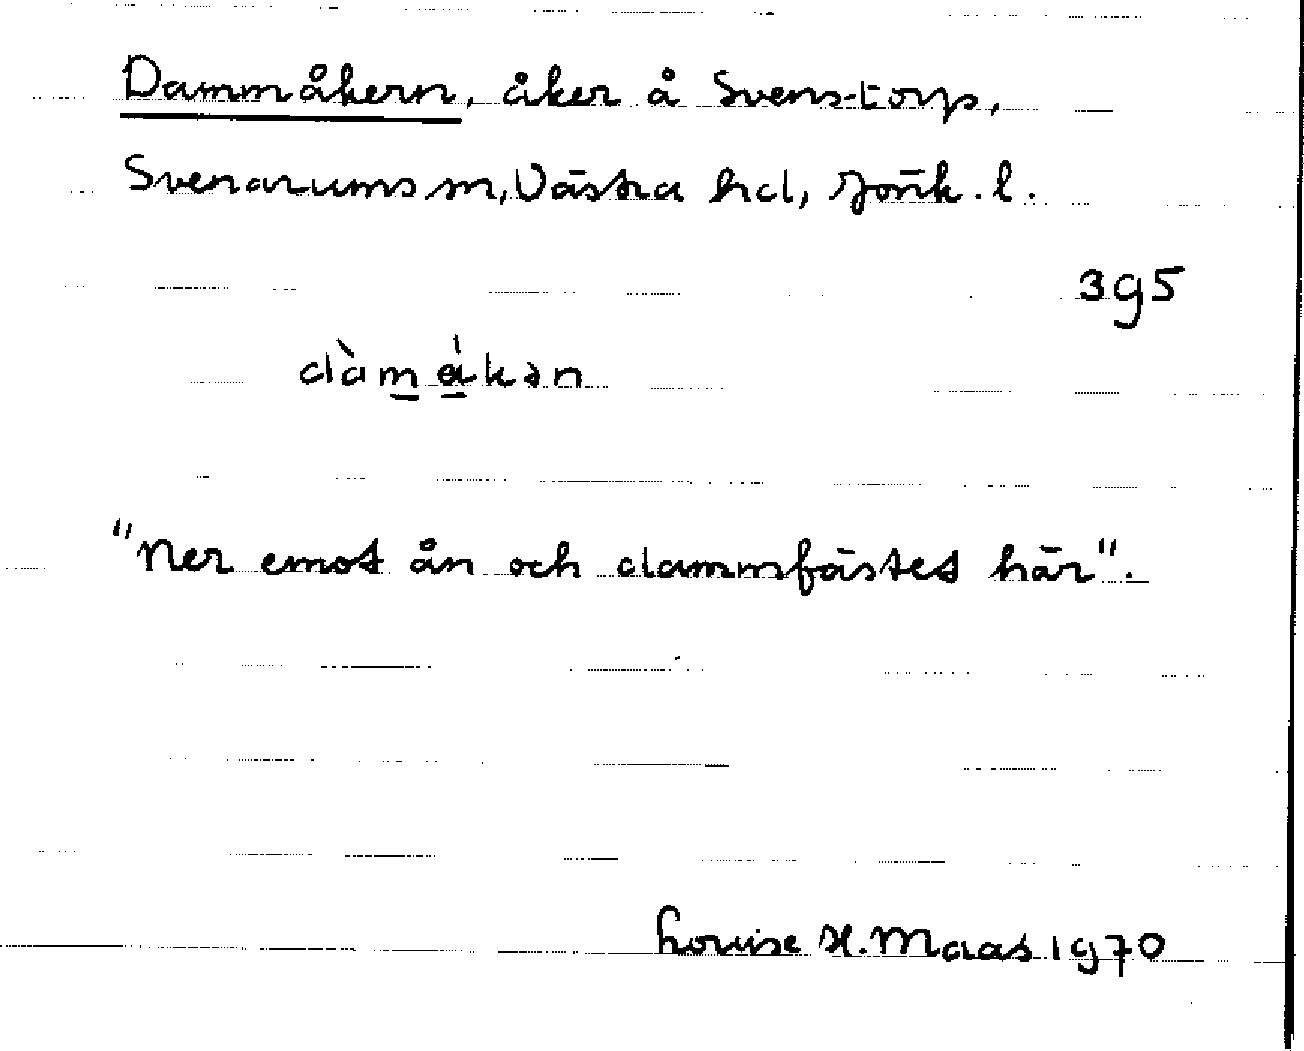 Dammåkern, åker å Svenstorp,
Svenarums sn, Västra hd, Jönk. l.
395
dàm̲å̲̍kən
"Ner emot ån och dammfästet här".
Louise H. Maas 1970